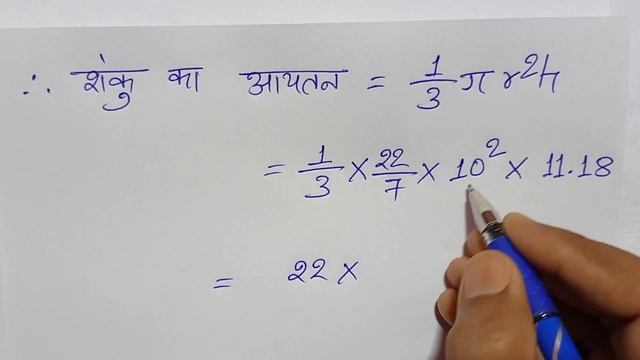 ∴ शंकु का आयतन = 1/3 π r²h
= 1/3 × 22/7 × 10² × 11.18
= 22 ×